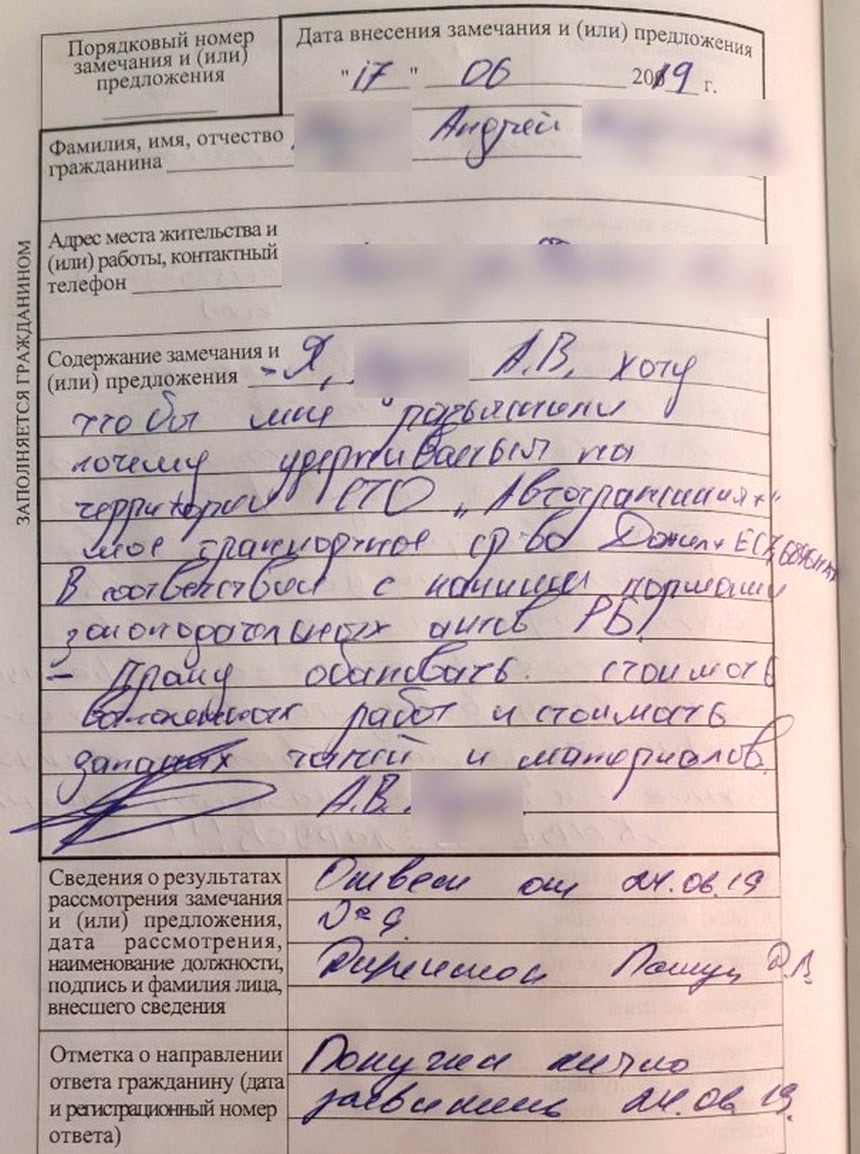 Порядковый номер
замечания и (или)
предложения
Дата внесения замечания и (или) предложения
"17" 06 2019 г.
ЗАПОЛНЯЕТСЯ ГРАЖДАНИНОМ
Фамилия, имя, отчество
гражданина
Андрей
Адрес места жительства и
(или) работы, контактный
телефон
Содержание замечания и
(или) предложения - Я, А.В. хочу
что бы мне разъяснили
почему удерживается на
территории СТО "
мое транспортное ср-во
В соответствии с какими нормами
законодательных актов РБ!
- Прошу обосновать стоимость
работ и стоимость
частей и материалов.
А.В.
Сведения о результатах
рассмотрения замечания
и (или) предложения,
дата рассмотрения,
наименование должности,
подпись и фамилия лица,
внесшего сведения
Ответ от 24.06.19
№ 9
Директор Д.В.
Отметка о направлении
ответа гражданину (дата
и регистрационный номер
ответа)
Получен лично
24.06.19.